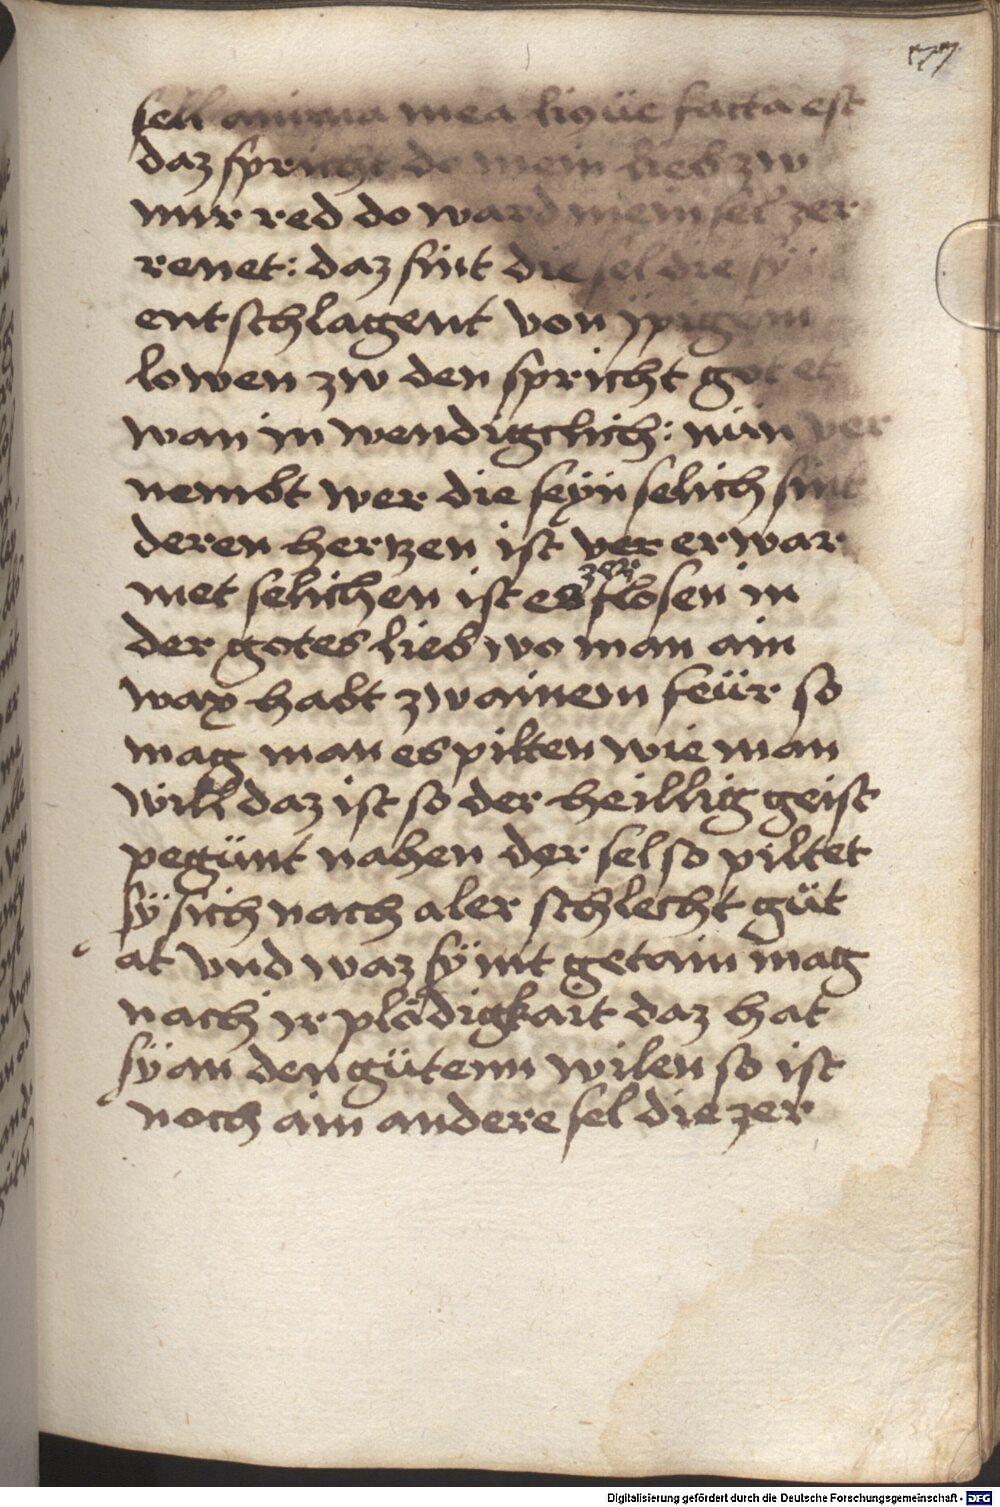 177
sell anima mea liqüe facta est
daz spricht do mein lieb zw
mir red do ward mein sel zer
renet: daz sint die sel die sÿ
entschlagent von ÿpigem
lowen zw den spricht got et
wan in wendigclich: nün ver
nembt wer die seÿn selich sint
deren hertzen ist ver erwar
met selichen ist es zer flosen in
der gotes lieb wo man ain
wax habt zw ainem feür so
mag man es pilten wie man
will daz ist so der heillig geist
pegünt nahen der sel so piltet
sÿ sich nach aler schlecht güt
at vnd waz sÿ nit getain mag
nach ir plödigkait daz hat
sÿ an den gütenn wilen so ist
noch ain andere sel die zer
Digitalisierung gefördert durch die Deutsche Forschungsgemeinschaft - DFG